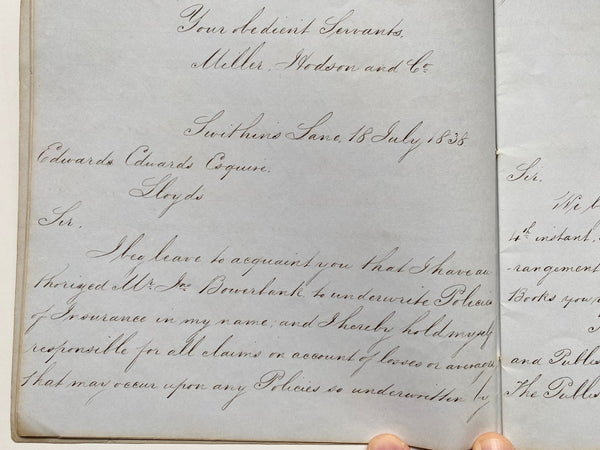 Your obedient Servants,
Miller, Hodson and Co.
Swithin's Lane, 18 July 1838
Edwards Edwards Esquire,
Lloyds
Sir.
I beg leave to acquaint you that I have au
thorized Mr. Jas Bowerbank to underwrite Policies
of Insurance in my name, and I hereby hold myself
responsible for all claims on account of losses or averages
that may occur upon any Policies so underwritten by
Sir.
We b
4th instant,
rangement
Books you
and Publis
The Publis